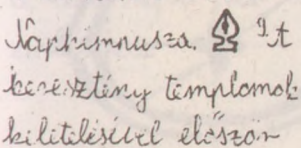 Naphimnusza. It
keresztény templomok
kitételésivel először